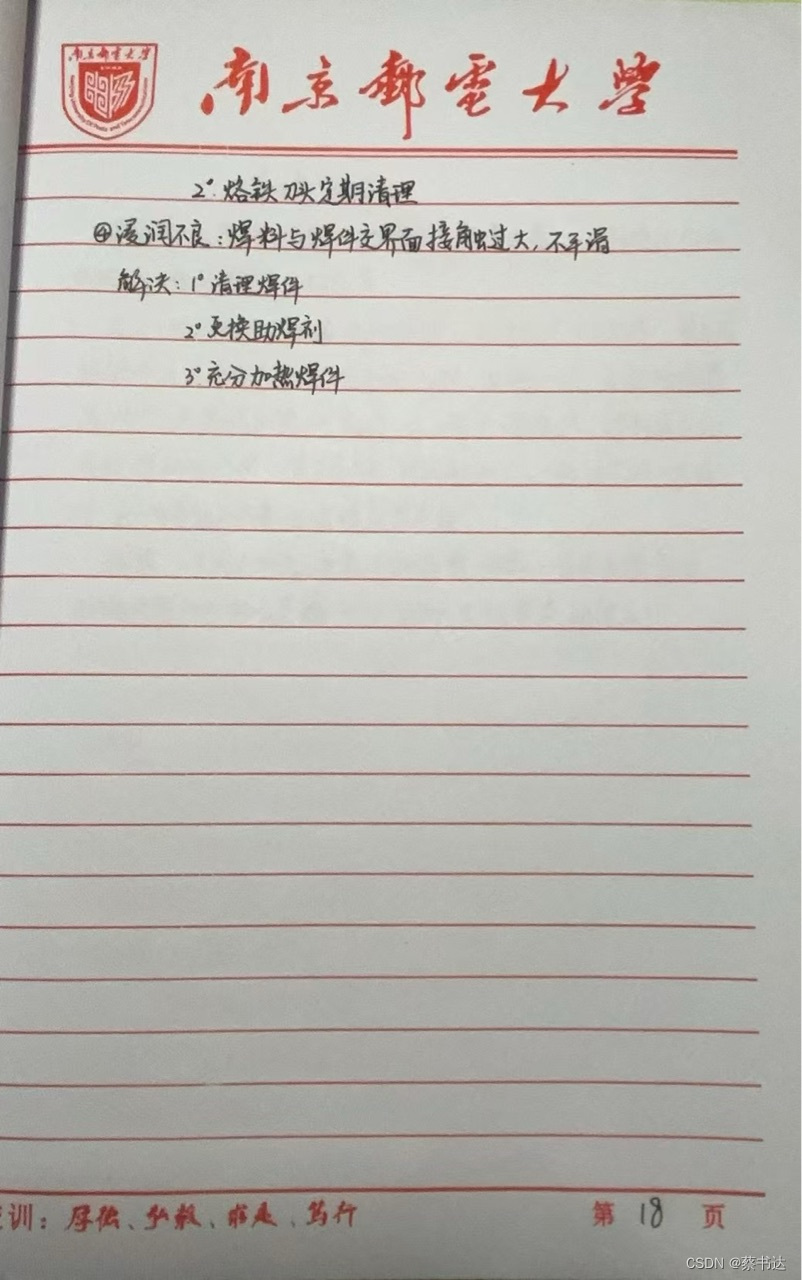 南京邮电大学
南京郵電大學
2°. 烙铁刀头定期清理
④浸润不良：焊料与焊件交界面接触过大，不平滑
解决：1°清理焊件
2°更换助焊剂
3°充分加热焊件
训：厚德、弘毅、求是、笃行
第 18 页
CSDN @蔡书达